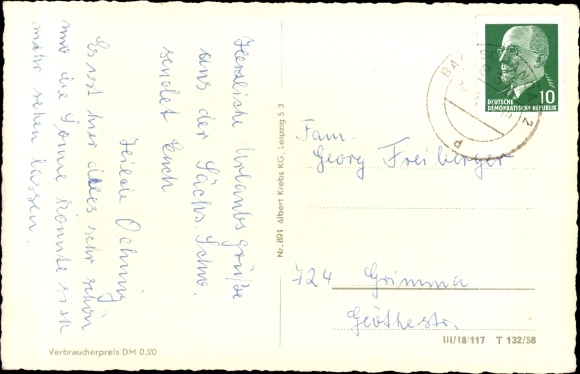 Herzliche Urlaubsgrüße
aus der Sächs. Schw.
sendet Euch
Es ist hier alles sehr schön
nur die Sonne könnte sich
mehr sehen lassen.
10
DEUTSCHE
DEMOKRATISCHE REPUBLIK
Fam.
Georg Freiberger
724 Grimma
Göthestr.
Nr. B91 Albert Krebs KG, Leipzig S 3
Verbraucherpreis DM 0.20
III/18/117 T 132/58